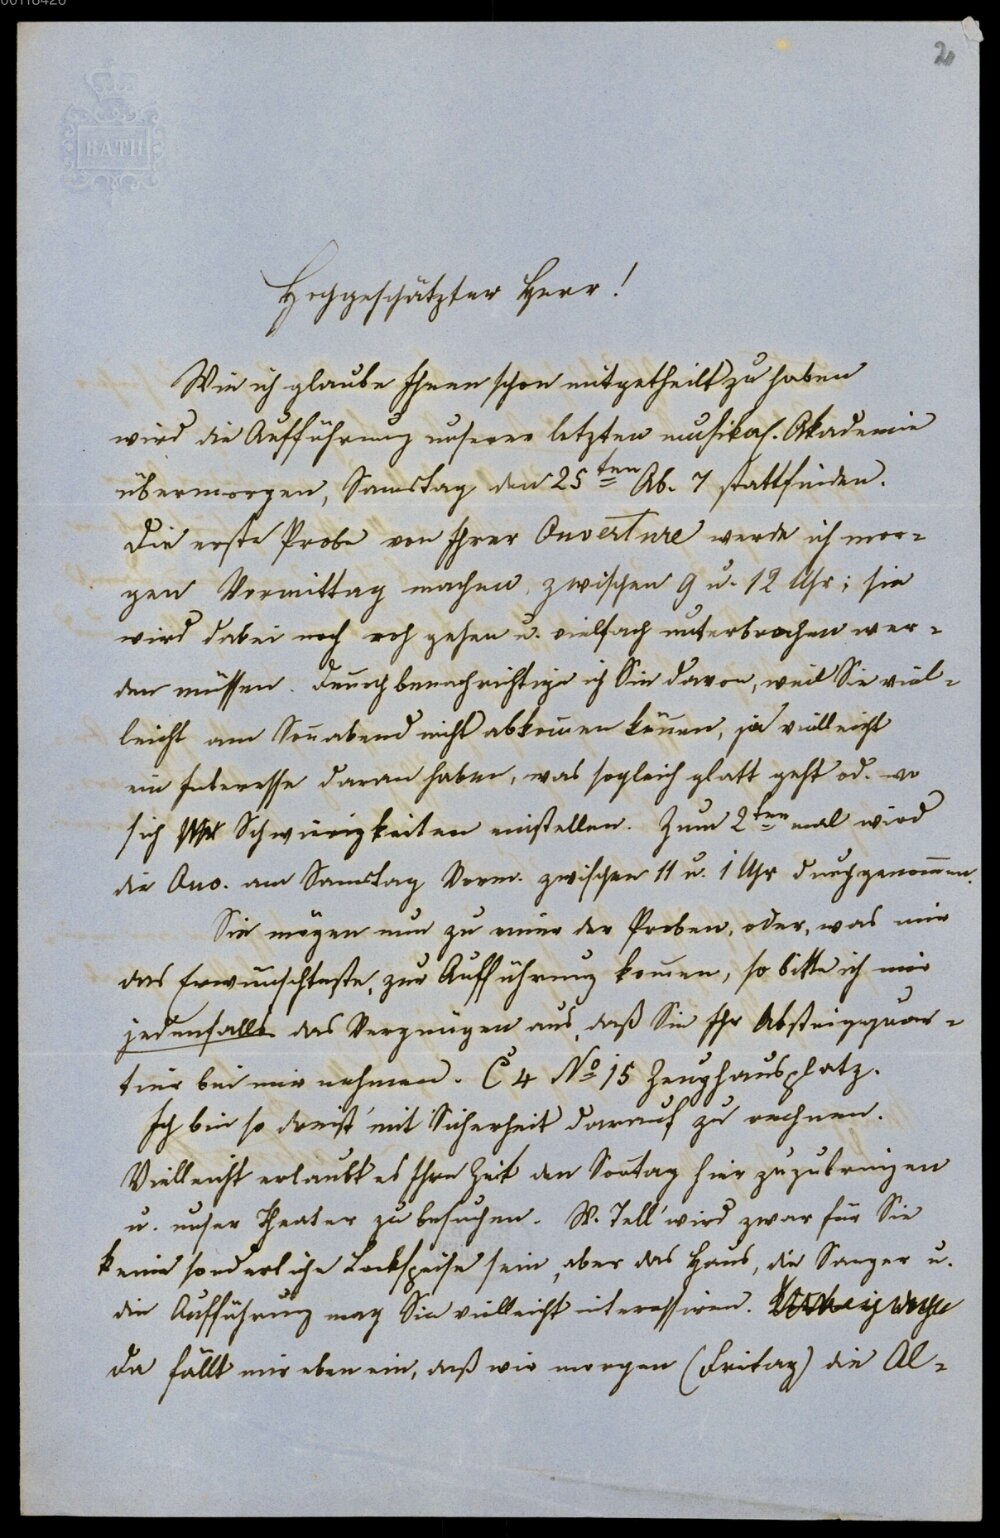 00118420
2
BATH
Hochgeschätzter Herr!
Wie ich glaube Ihnen schon mitgetheilt zu haben
wird die Aufführung unserer letzten musikal. Akademie
übermorgen, Samstag den 25ten Ab. 7 stattfinden.
Die erste Probe von Ihrer Ouverture werde ich mor-
gen Vormittag machen, zwischen 9 u. 12 Uhr; sie
wird dabei noch roh gehen u. vielfach unterbrochen wer-
den müssen. Dennoch benachrichtige ich Sie davon, weil Sie viel-
leicht am Sonnabend nicht abkommen können, ja vielleicht
ein Interesse daran haben, was sogleich glatt geht od. wo
sich Schwierigkeiten einstellen. Zum 2ten mal wird
die Ouv. am Samstag Vorm. zwischen 11 u. 1 Uhr durchgenommen.
Sie mögen nun zu einer der Proben, oder, was mir
das Erwünschteste, zur Aufführung kommen, so bitte ich mir
jedenfalls das Vergnügen aus, daß Sie Ihr Absteigquar-
tier bei mir nehmen. C 4 No 15 Zeughausplatz.
Ich bin so dreist mit Sicherheit darauf zu rechnen.
Vielleicht erlaubt es Ihre Zeit den Sonntag hier zuzubringen
u. unser Theater zu besuchen. W. Tell wird zwar für Sie
keine sonderliche Lockspeise sein, aber das Haus, die Sänger u.
die Aufführung mag Sie vielleicht interessiren.
Da fällt mir eben ein, daß wir morgen (Freitag) die Al-